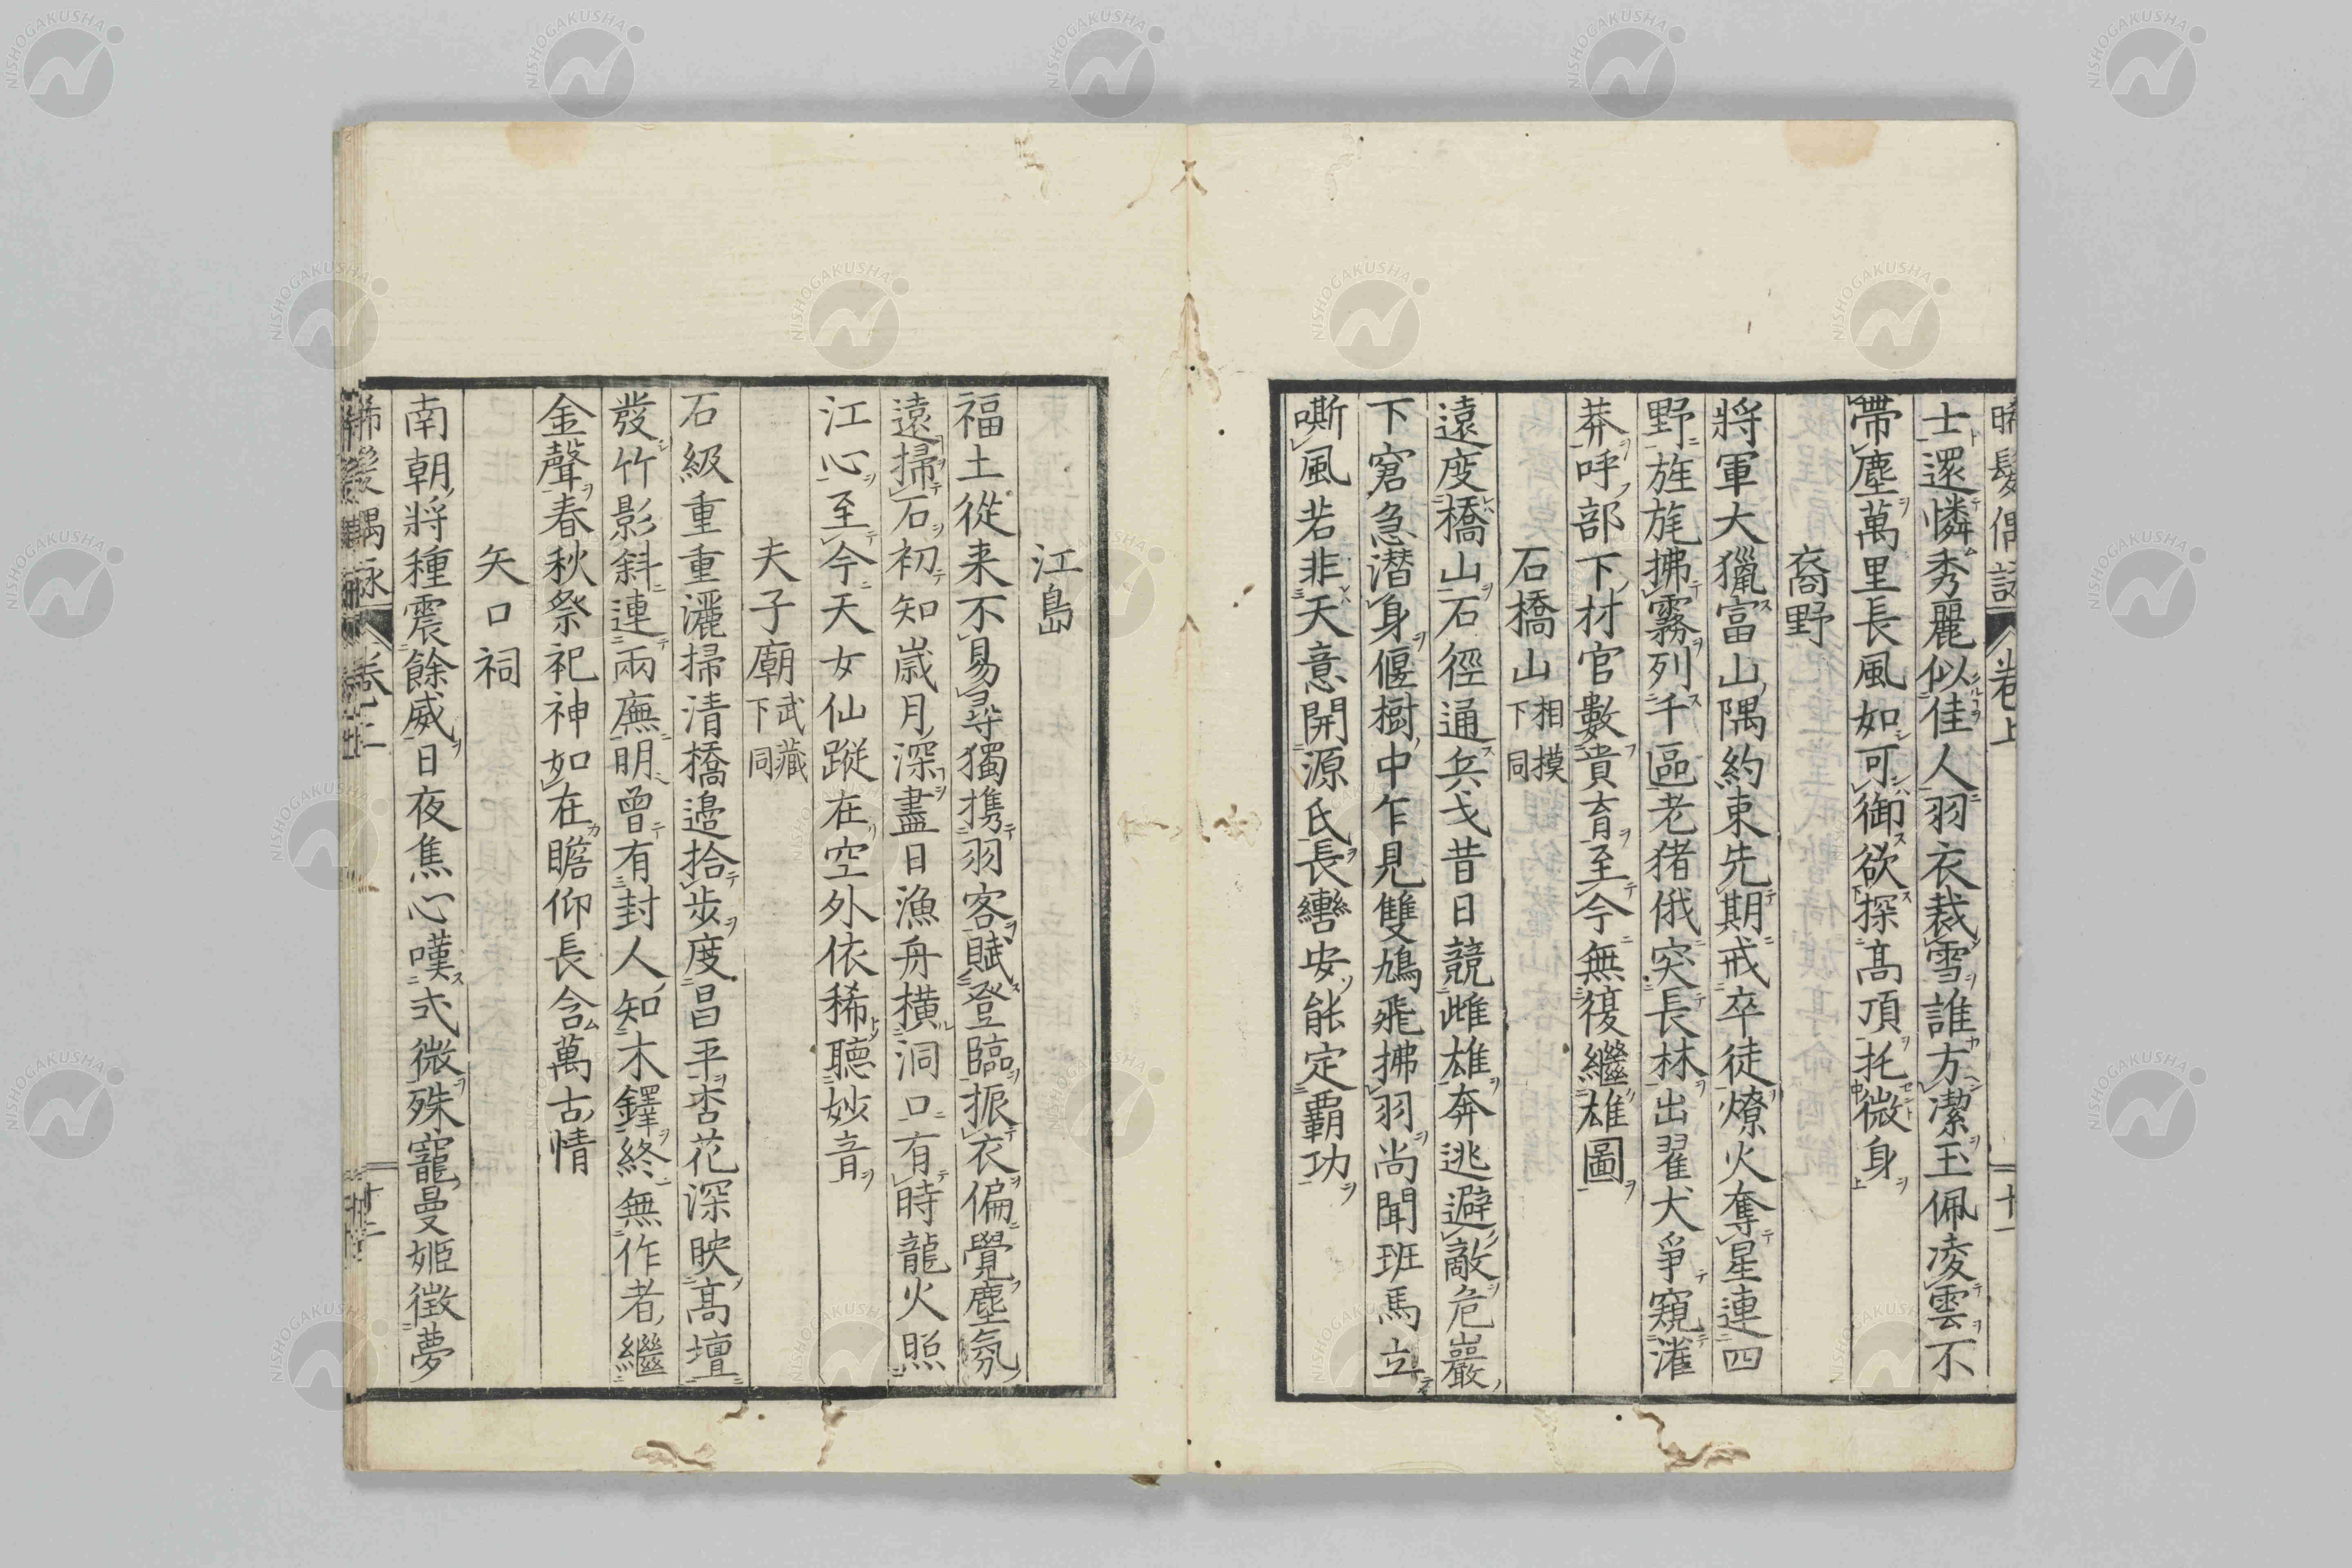 晞髮偶詠 卷上 十一
士還憐秀麗似佳人羽衣裁雪誰方潔玉佩凌雲不
帶塵萬里長風如可御欲探高頂托微身
裔野
將軍大獵富山隅約束先期戒卒徒燎火奪星連四
野旌旄拂霧列千區老猪俄突長林出翟犬爭窺灌
莽呼部下材官數賁育至今無復繼雄圖
石橋山 相摸下同
遠度橋山石徑通兵戈昔日競雌雄奔逃避敵危巖
下窘急潜身偃樹中乍見雙鳩飛拂羽尚聞班馬立
嘶風若非天意開源氏長轡安能定覇功
江島
福土從来不易尋獨携羽客賦登臨振衣偏覺塵氛
遠掃石初知歳月深盡日漁舟橫洞口有時龍火照
江心至今天女仙蹤在空外依稀聽妙音
夫子廟 武藏下同
石級重重灑掃清橋邉拾步度昌平杏花深映高壇
發竹影斜連兩廡明曾有封人知木鐸終無作者繼
金聲春秋祭祀神如在瞻仰長含萬古情
矢口祠
南朝將種震餘威日夜焦心嘆式微殊寵曼姬徴夢
NISHOGAKUSHA